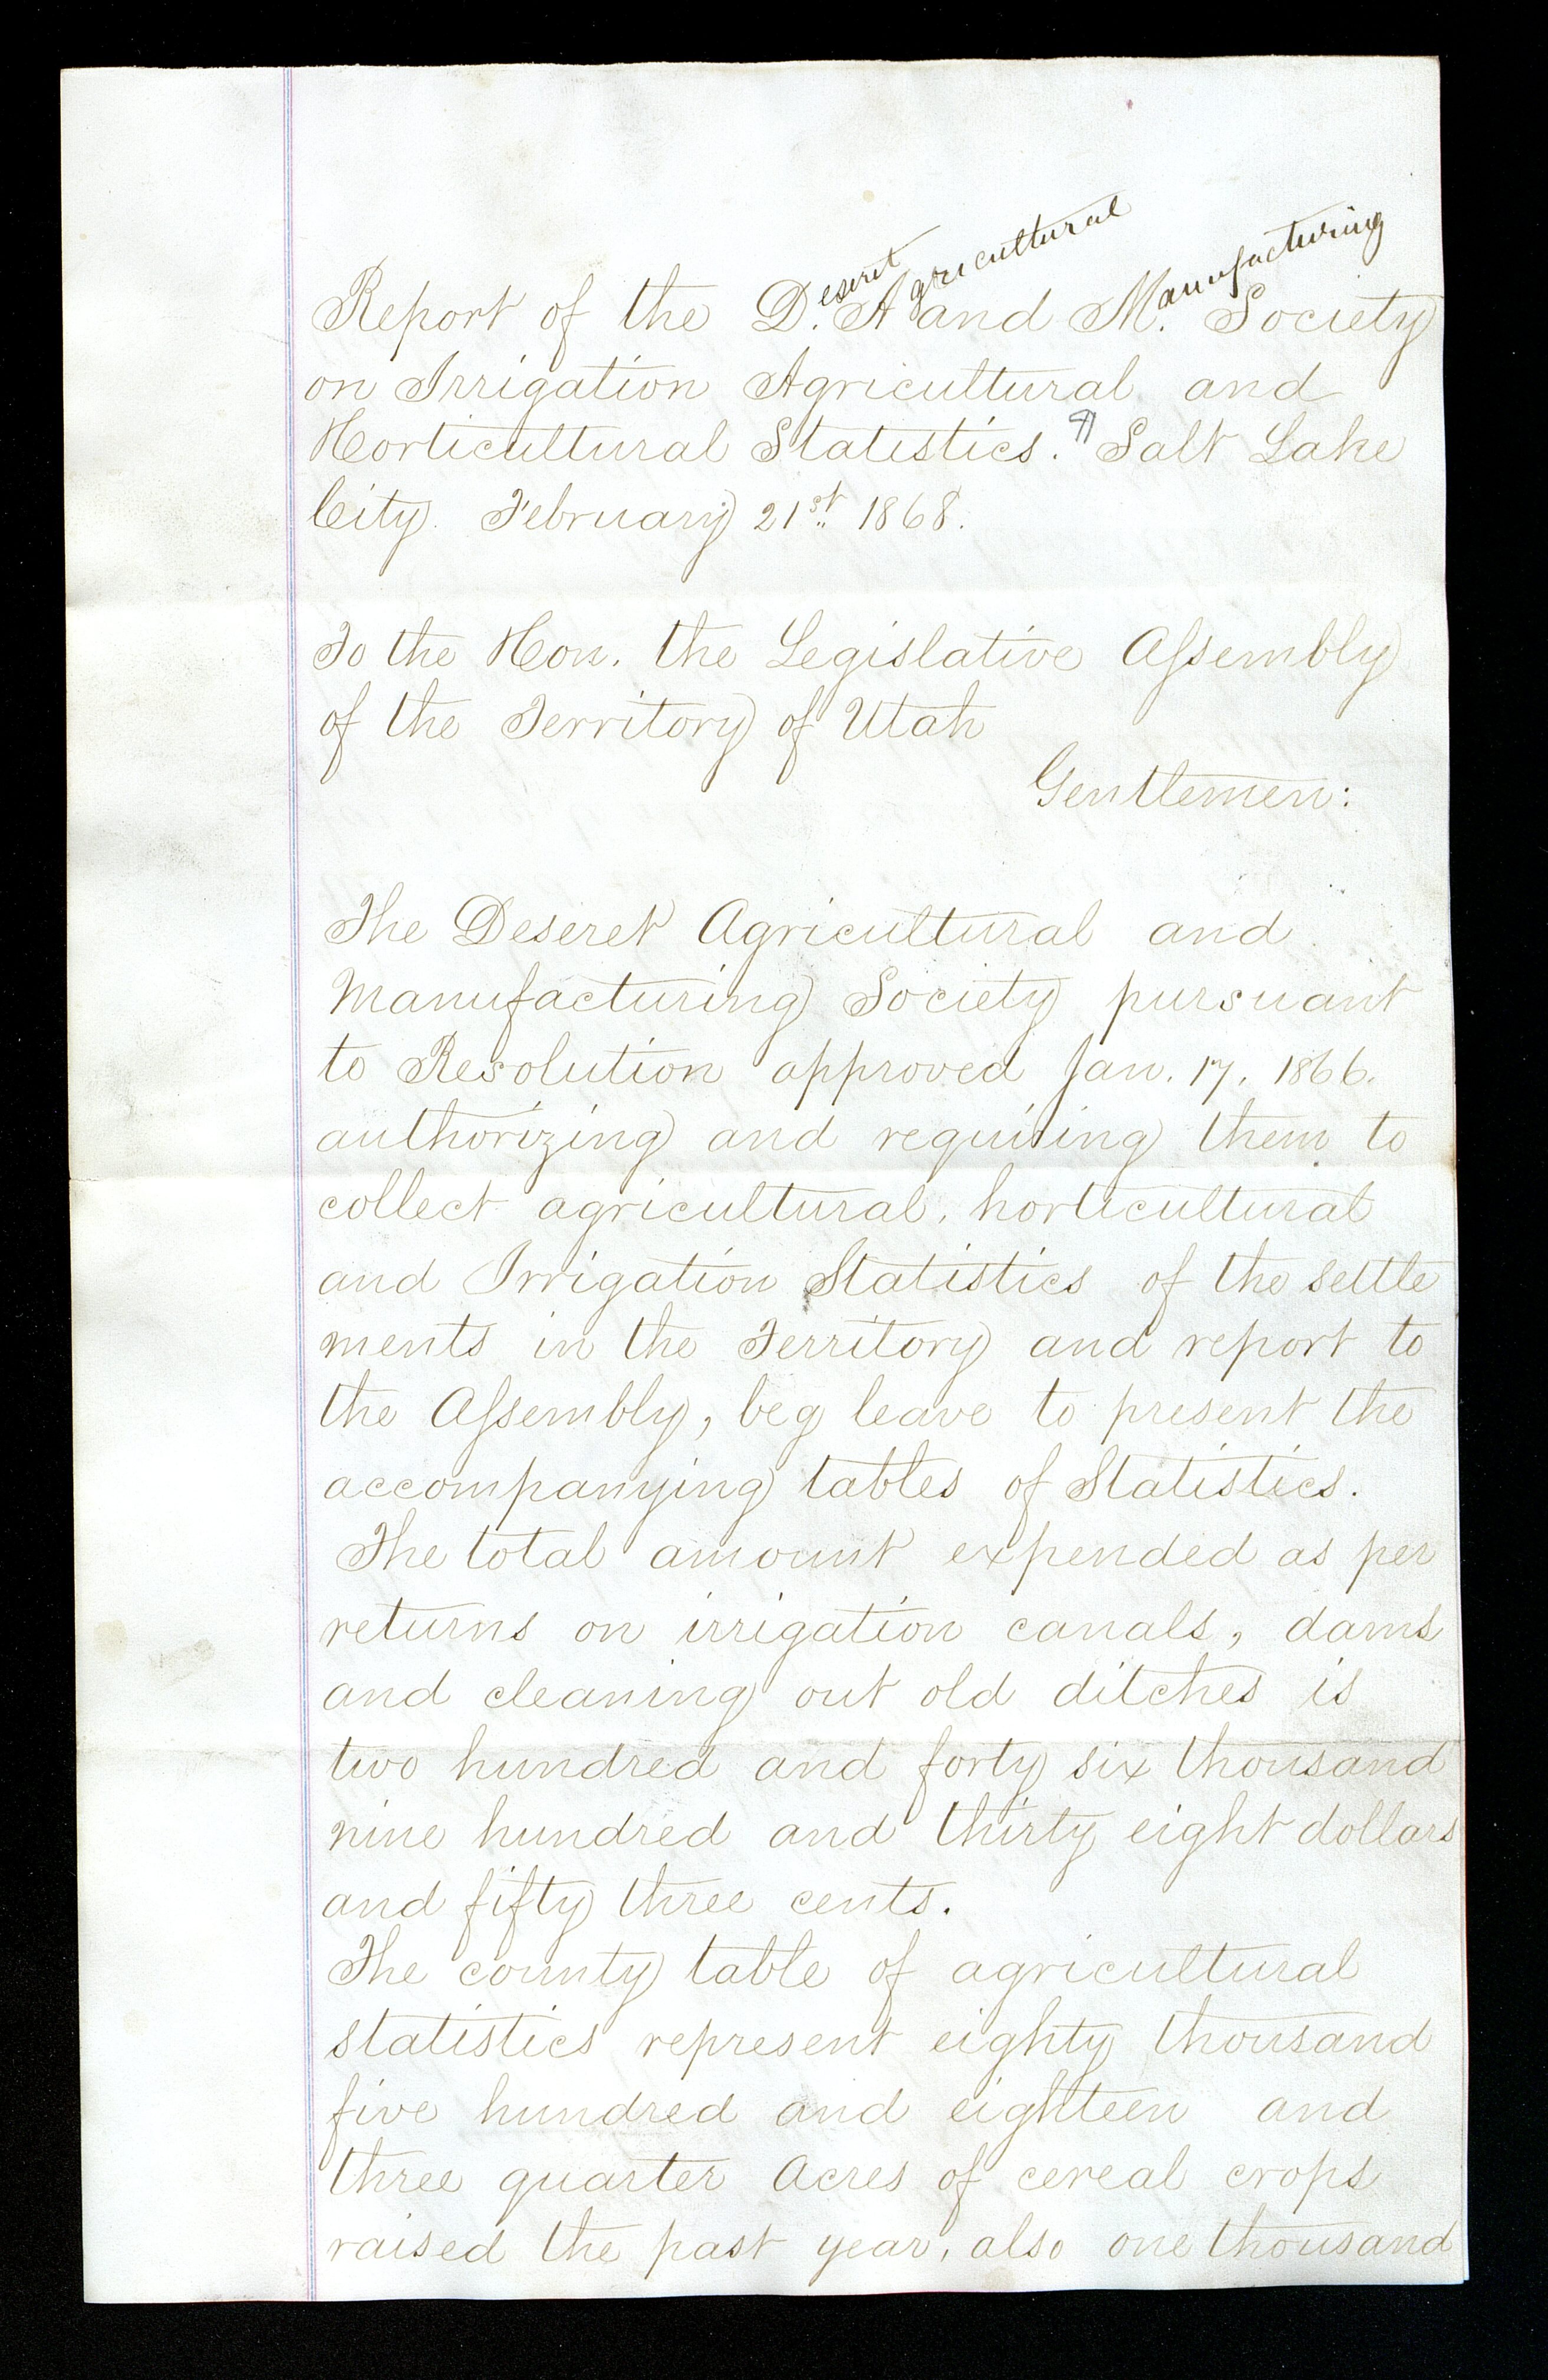 Report of the D.eseret Agricultural and M.anufacturing Society
on Irrigation Agricultural and
Horticultural Statistics. ¶ Salt Lake
City. February 21st 1868.
To the Hon. the Legislative Assembly
of the Territory of Utah
Gentlemen:
The Deseret Agricultural and
Manufacturing Society pursuant
to Resolution approved Jan. 17, 1866.
authorizing and requiring them to
collect agricultural, horticultural
and Irrigation Statistics of the settle
ments in the Territory and report to
the Assembly, beg leave to present the
accompanying tables of Statistics.
The total amount expended as per
returns on irrigation canals, dams
and cleaning out old ditches is
two hundred and forty six thousand
nine hundred and thirty eight dollars
and fifty three cents.
The county table of agricultural
statistics represent eighty thousand
five hundred and eighteen and
three quarter Acres of cereal crops
raised the past year, also one thousand